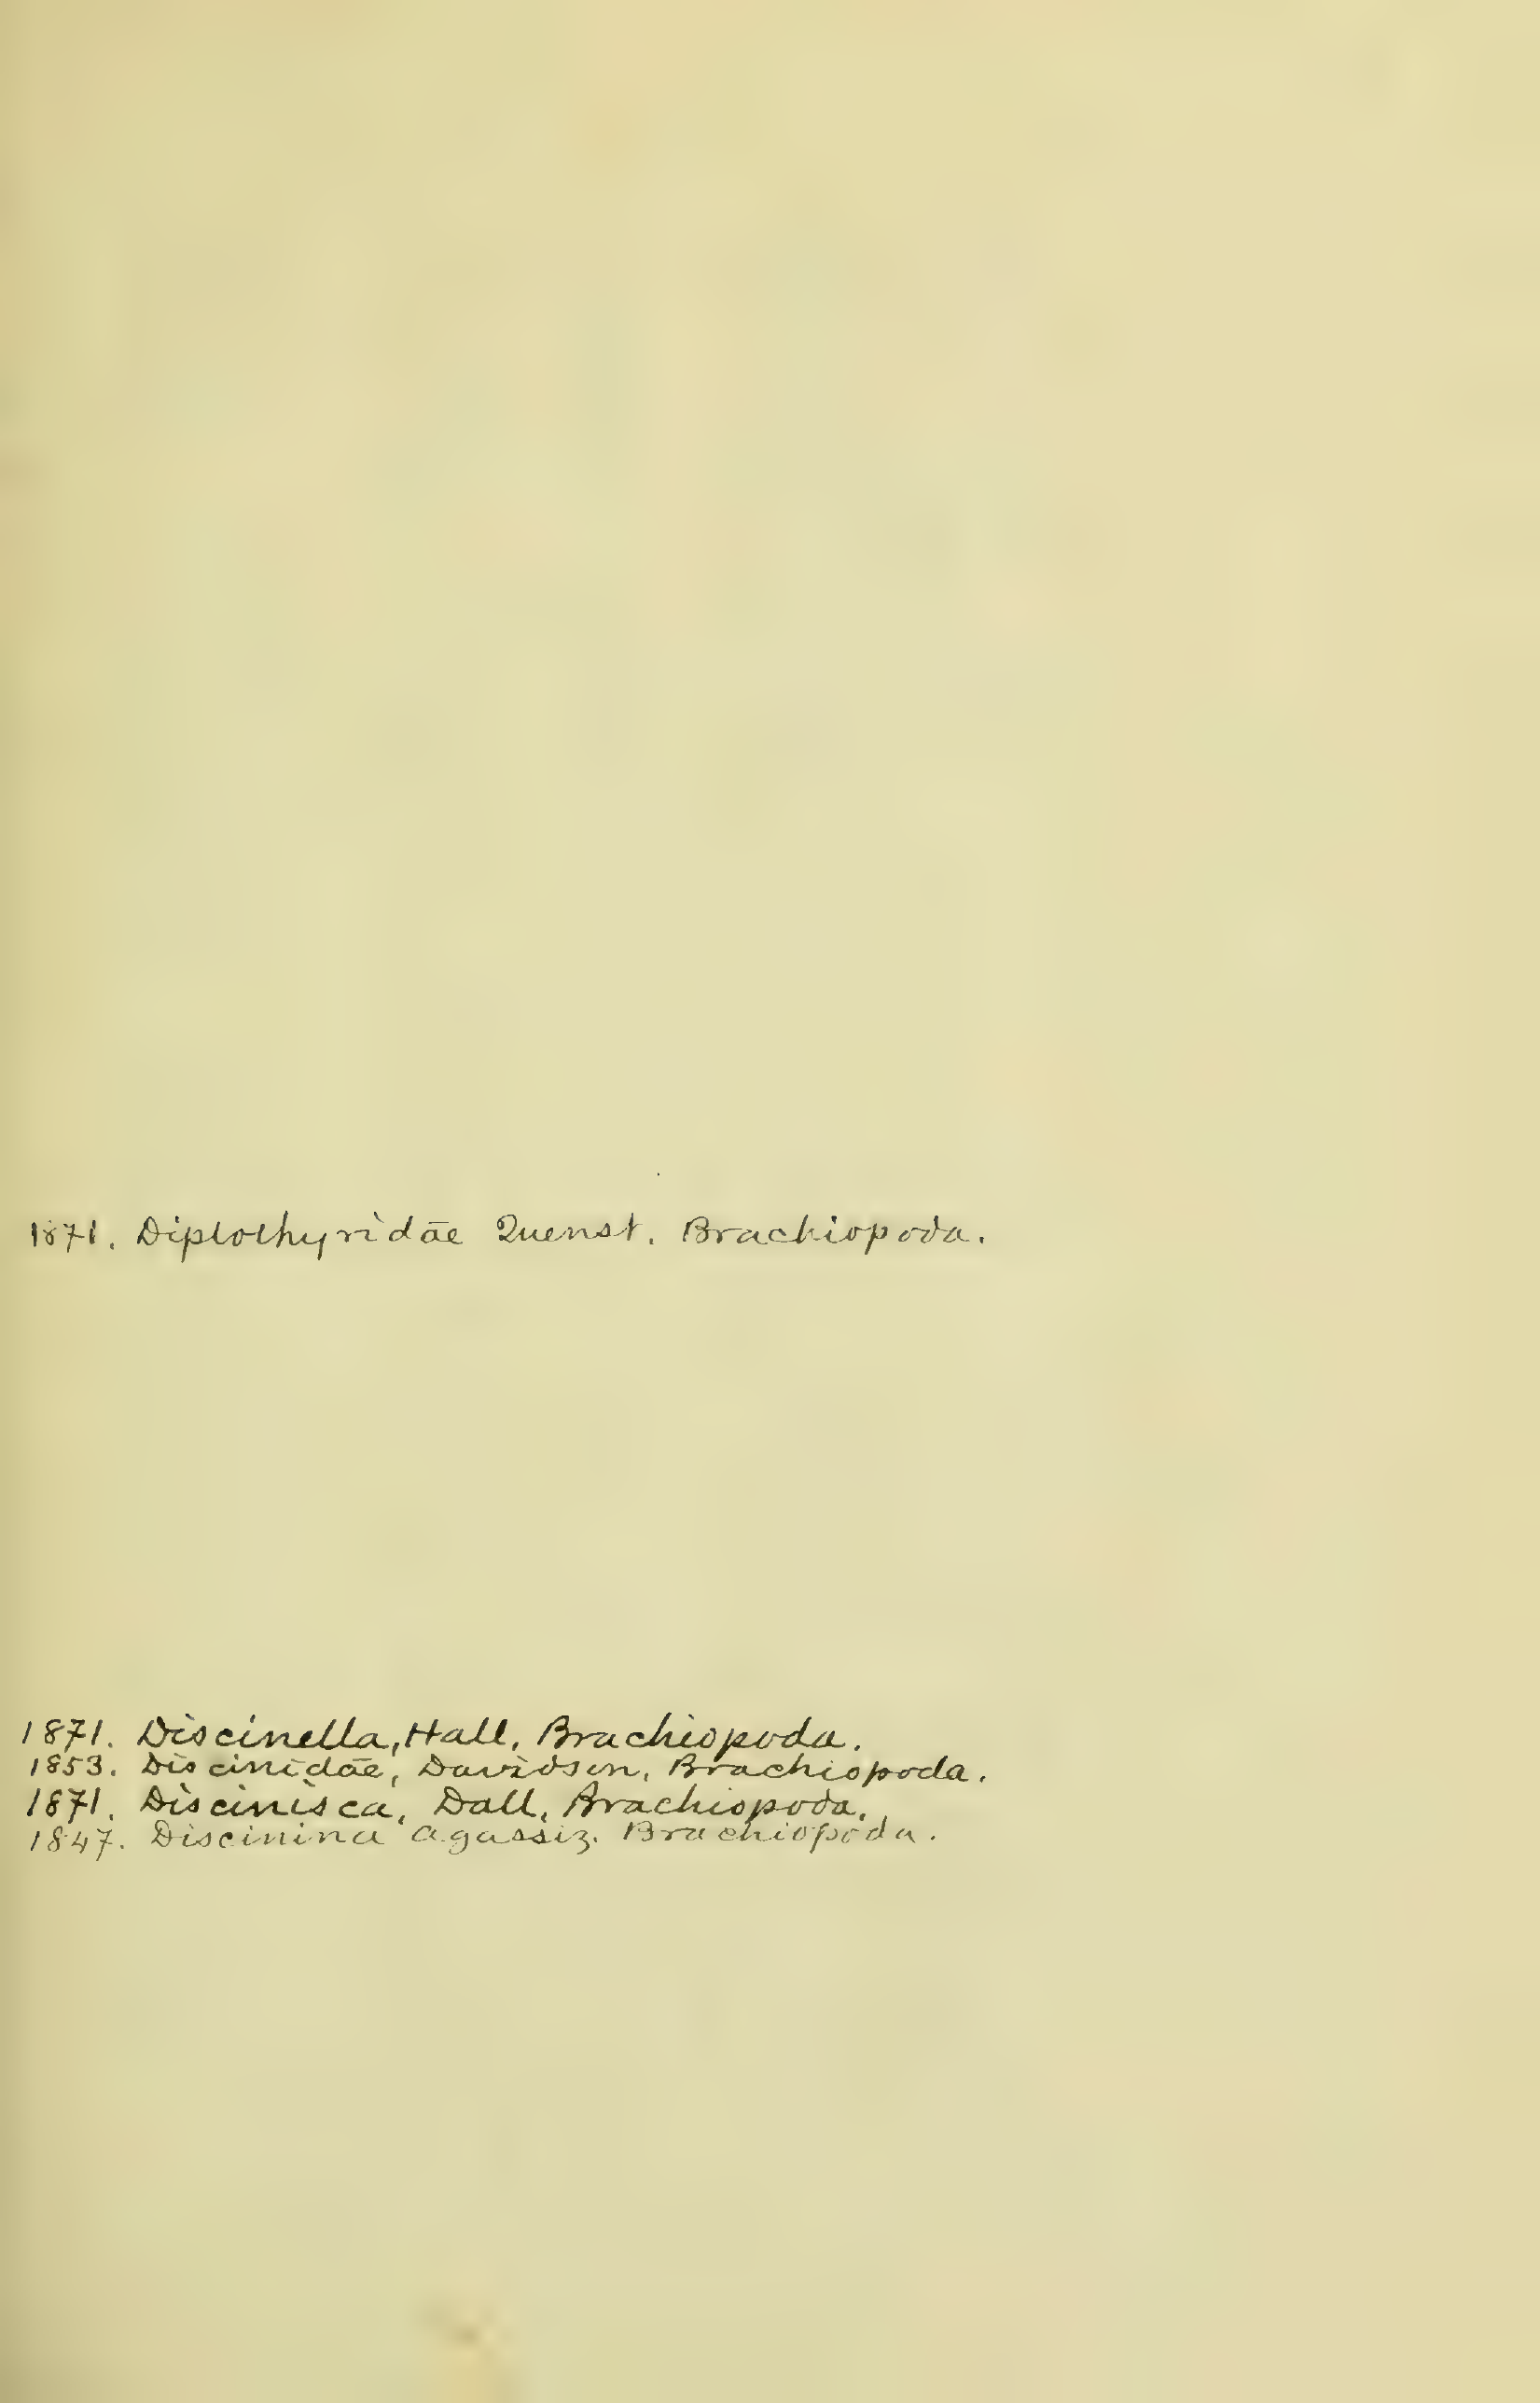 1871. Diplothyridae Quenst. Brachiopoda.
1871. Discinella, Hall, Brachiopoda.
1853. Discinidae, Davidson, Brachiopoda.
1871. Discinisca, Dall, Brachiopoda,
1847. Discinina Agassiz. Brachiopoda.